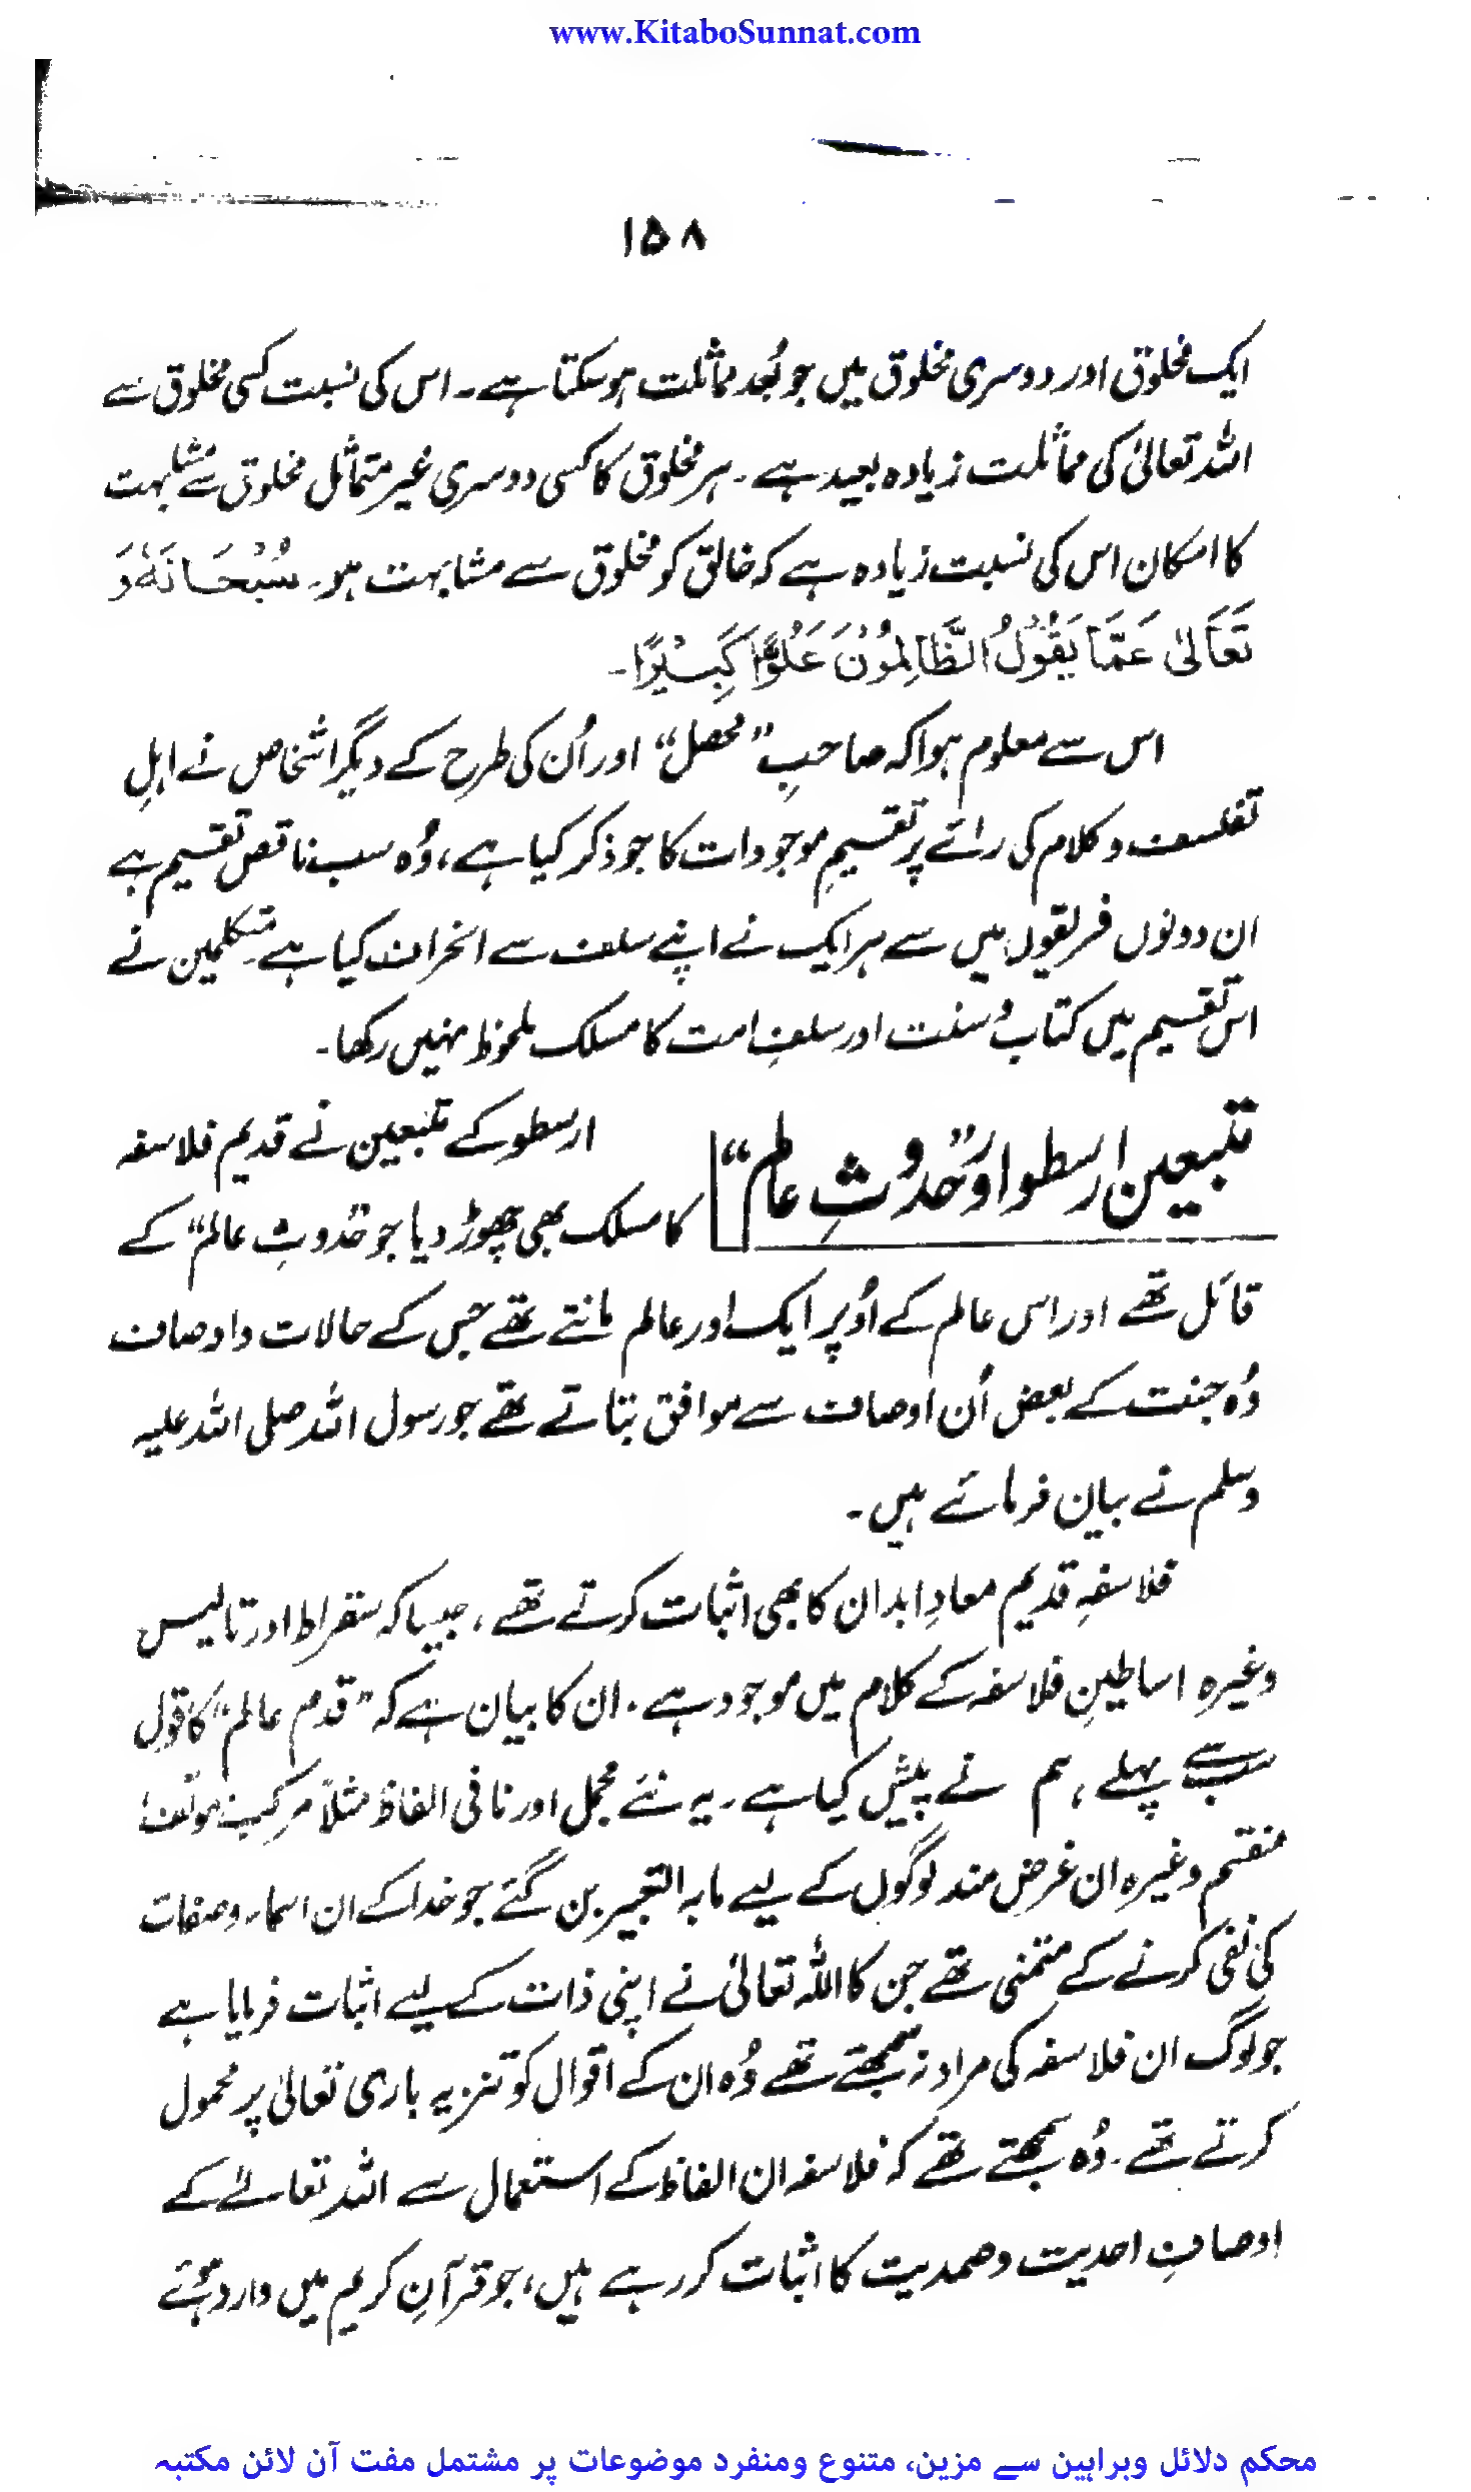 www.KitaboSunnat.com
۱۵۸
ایک مخلوق اور دوسری مخلوق میں جو بُعد مماثلت ہو سکتا ہے۔ اس کی نسبت کسی مخلوق سے
اللہ تعالیٰ کی مماثلت زیادہ بعید ہے۔ ہر مخلوق کا کسی دوسری غیر متماثل مخلوق سے مشابہت
کا امکان اس کی نسبت زیادہ ہے کہ خالق کو مخلوق سے مشابہت ہو۔ سُبْحَانَهٗ وَ
تَعَالیٰ عَمَّا یَقُوْلُ الظَّالِمُوْنَ عَلُوًّا کَبِیْرًا۔
اس سے معلوم ہوا کہ صاحبِ ”محصل“ اور اُن کی طرح کے دیگر اشخاص نے اہلِ
تفلسف و کلام کی رائے پر تقسیمِ موجودات کا جو ذکر کیا ہے، وُہ سب ناقص تقسیم ہے
ان دونوں فریقوں میں سے ہر ایک نے اپنے سلف سے انحراف کیا ہے۔ متکلمین نے
اس تقسیم میں کتاب و سنت اور سلفِ امت کا مسلک ملحوظ نہیں رکھا۔
متبعین ارسطو اور ”حُدوثِ عالم“
ارسطو کے متبعین نے قدیم فلاسفہ
کا مسلک بھی چھوڑ دیا جو حُدوثِ عالم“ کے
قائل تھے اور اس عالم کے اُوپر ایک اور عالم مانتے تھے جس کے حالات و اوصاف
وُہ جنت کے بعض اُن اوصاف سے موافق بتاتے تھے جو رسول اللہ صلی اللہ علیہ
وسلم نے بیان فرمائے ہیں۔
فلاسفہِ قدیم معادِ ابدان کا بھی اثبات کرتے تھے، جیسا کہ سقراط اور تالیس
وغیرہ اساطینِ فلاسفہ کے کلام میں موجود ہے۔ ان کا بیان ہے کہ ”قدم عالم“ کا قول
سب سے پہلے، ہم نے پیش کیا ہے۔ یہ نئے مجمل اور نافی الفاظ مثلاً مرکب، مؤلف،
منقسم وغیرہ ان غرض مند لوگوں کے لیے مابہ التعبیر بن گئے جو خدا کے ان اسماء و صفات
کی نفی کرنے کے متمنی تھے جن کا اللہ تعالیٰ نے اپنی ذات کے لیے اثبات فرمایا ہے
جو لوگ ان فلاسفہ کی مراد نہ سمجھتے تھے وُہ ان کے اقوال کو تنزیہ باری تعالیٰ پر محمول
کرتے تھے۔ وُہ سمجھتے تھے کہ فلاسفہ ان الفاظ کے استعمال سے اللہ تعالےٰ کے
اوصافِ احدیت و صمدیت کا اثبات کر رہے ہیں، جو قرآنِ کریم میں وارد ہوئے
محکم دلائل وبراہین سے مزین، متنوع ومنفرد موضوعات پر مشتمل مفت آن لائن مکتبہ